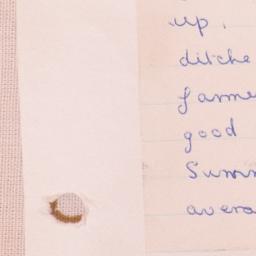 up,
ditche
farme
good
Summ
avera